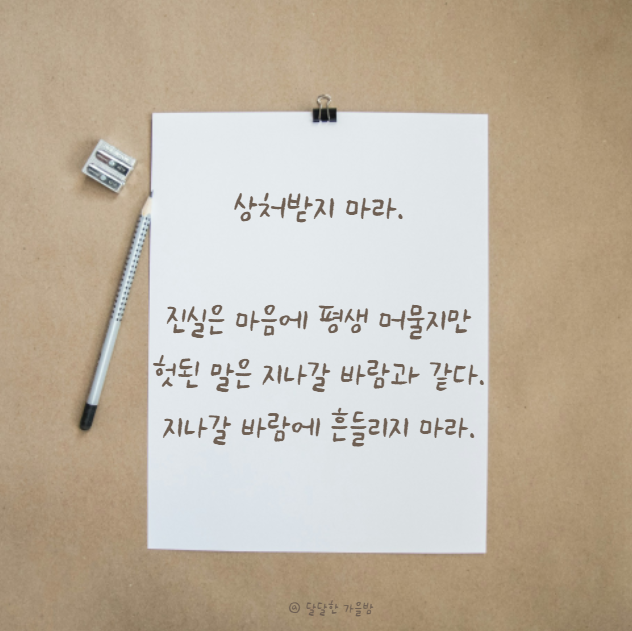 상처받지 마라.
진실은 마음에 평생 머물지만
헛된 말은 지나갈 바람과 같다.
지나갈 바람에 흔들리지 마라.
@ 달달한 가을밤